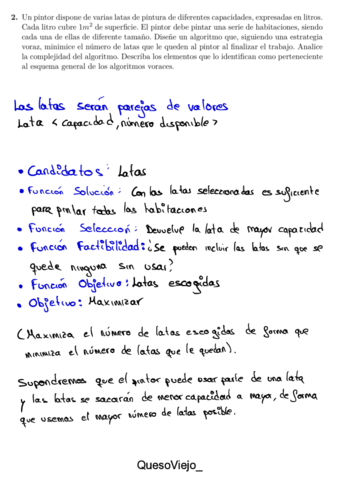 2. Un pintor dispone de varias latas de pintura de diferentes capacidades, expresadas en litros.
Cada litro cubre 1m² de superficie. El pintor debe pintar una serie de habitaciones, siendo
cada una de ellas de diferente tamaño. Diseñe un algoritmo que, siguiendo una estrategia
voraz, minimice el número de latas que le queden al pintor al finalizar el trabajo. Analice
la complejidad del algoritmo. Describa los elementos que lo identifican como perteneciente
al esquema general de los algoritmos voraces.
Las latas serán parejas de valores
Lata < capacidad, número disponible >
• Candidatos: Latas
• Función Solución: Con las latas seleccionadas es suficiente
para pintar todas las habitaciones
• Función Selección: Devuelve la lata de mayor capacidad
• Función Factibilidad: ¿Se pueden incluir las latas sin que se
quede ninguna sin usar?
• Función Objetivo: Latas escogidas
• Objetivo: Maximizar
(Maximiza el número de latas escogidas de forma que
minimiza el número de latas que le quedan).
Supondremos que el pintor puede usar parte de una lata
y las latas se sacarán de menor capacidad a mayor, de forma
que usemos el mayor número de latas posible.
QuesoViejo_